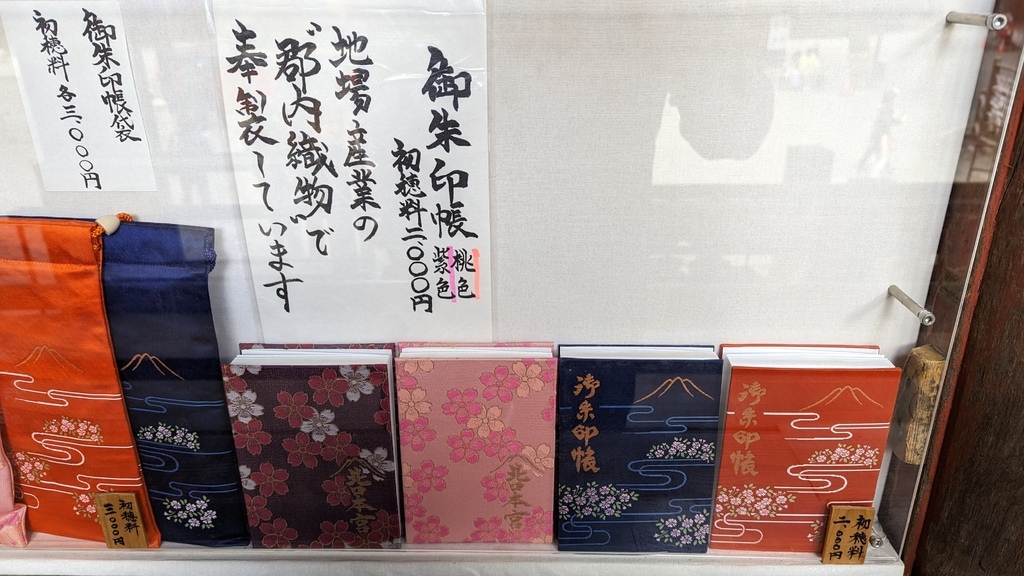 御朱印帳袋
初穂料 各三、〇〇〇円
御朱印帳
桃色
紫色
初穂料二、〇〇〇円
地場産業の
郡内織物で
奉製しています
初穂料
三、〇〇〇円
北口本宮
北口本宮
御朱印帳
御朱印帳
初穂料